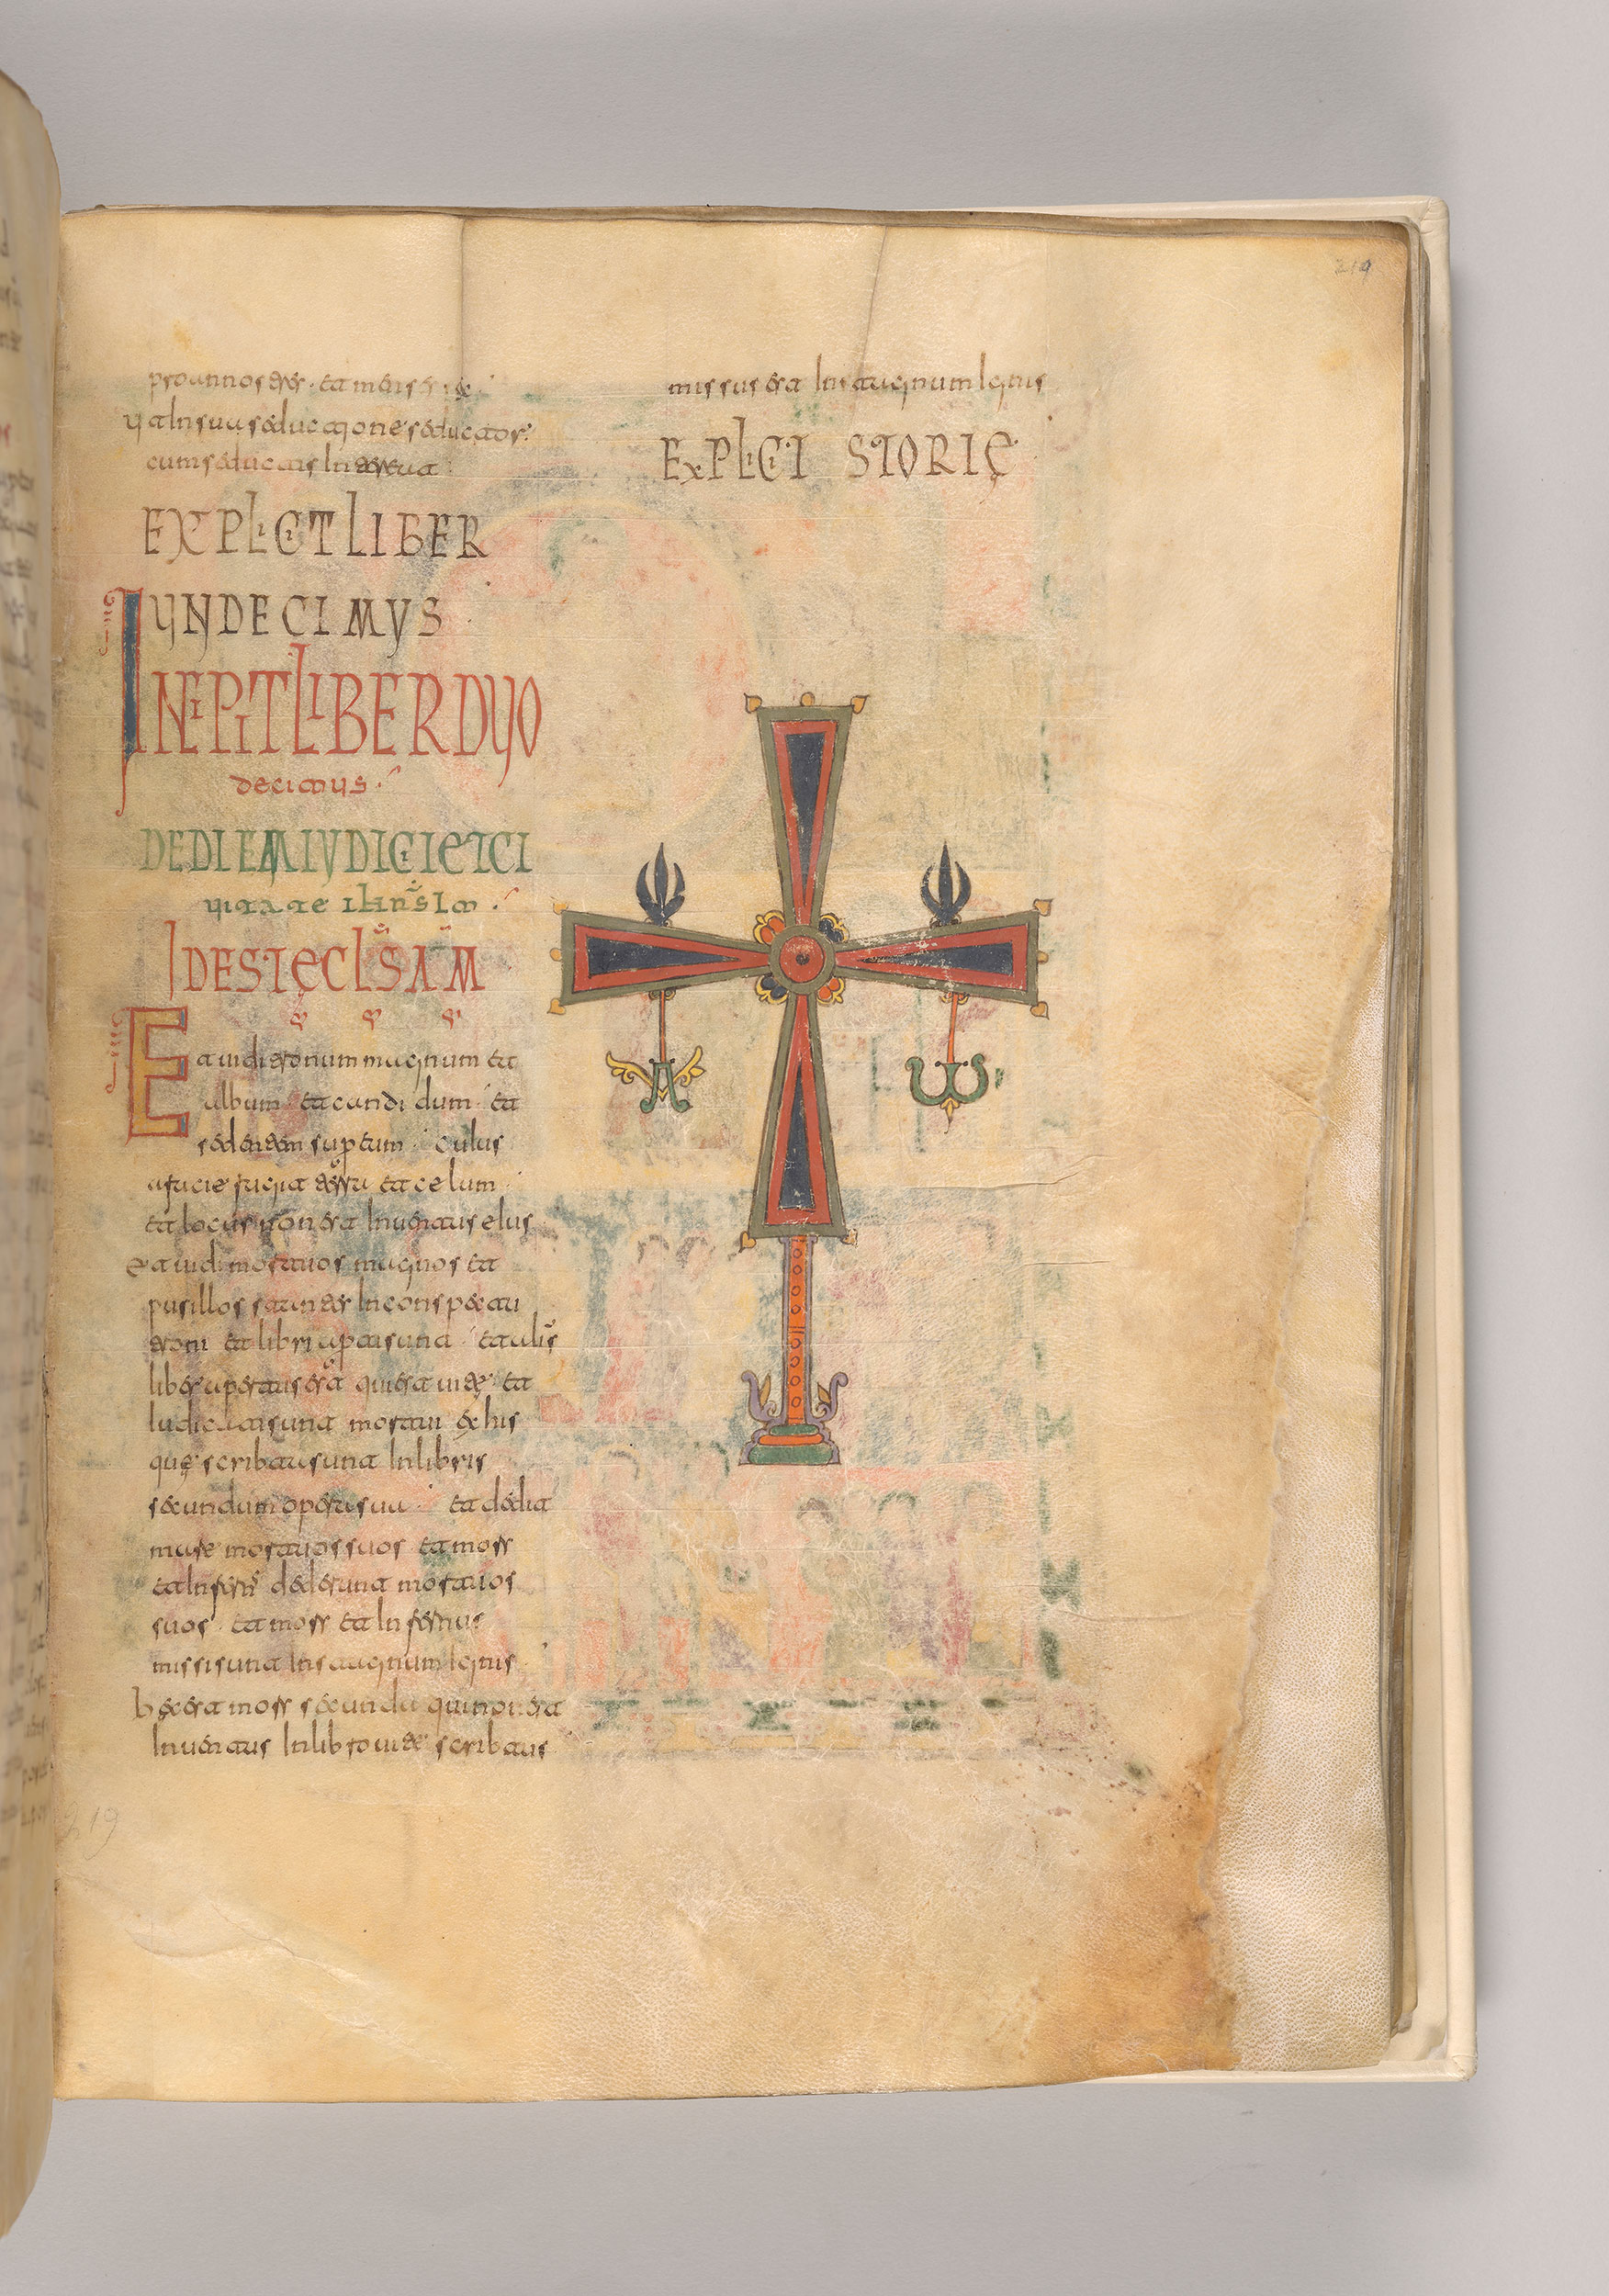 EXPLICIT LIBER
UNDECIMUS
INCIPIT LIBER DUO
decimus
DE DIEM IUDICII ET CI
uitate ihrslm
ID EST ECLSAM
Et uidi tronum magnum et
album et candidum et
sedentem cuius
a facie fugit terra et celum
et locus non est inuentus eius
et uidi mortuos magnos et
pusillos stantes in conspectu
troni et libri aperti sunt et alius
liber apertus est qui est uite et
iudicati sunt mortui ex his
quę scribta sunt in libris
secundum opera sua et dedit
mare mortuos suos et mors
et infernus dederunt mortuos
suos et mors et infernus
missi sunt in stagnum ignis
hec est mors secunda qui non est
inuentus in libro uite scribtus
missus est in stagnum ignis
EXPLICI STORIĘ
A ω
219
219